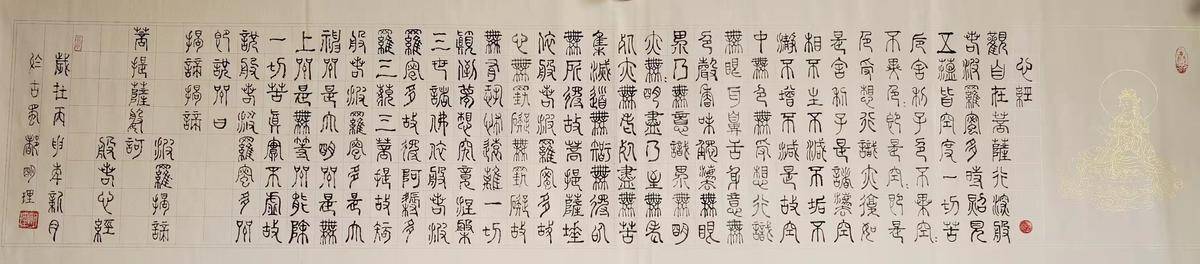 心經
觀自在菩薩行深般
若波羅蜜多時照見
五蘊皆空度一切苦
厄舍利子色不異空:
不異色:即是空:即是
色受想行識亦復如
是舍利子是諸法空
相不生不滅不垢不
淨不增不減是故空
中無色無受想行識
無眼耳鼻舌身意無
色聲香味觸法無眼
界乃無意識界無明
亦無:明盡乃至無老
死亦無老死盡無苦
集滅道無智無得以
無所得故菩提薩埵
依般若波羅蜜多故
心無罣礙無罣礙故
無有恐怖遠離一切
顛倒夢想究竟涅槃
三世諸佛依般若波
羅蜜多故得阿耨多
羅三藐三菩提故知
般若波羅蜜多是大
神咒是大明咒是無
上咒是無等咒能除
一切苦真實不虛故
說般若波羅蜜多咒
即說咒曰
揭諦揭諦
波羅揭諦
菩提薩婆訶
般若心經
歲在丙申年新月
於古 明理